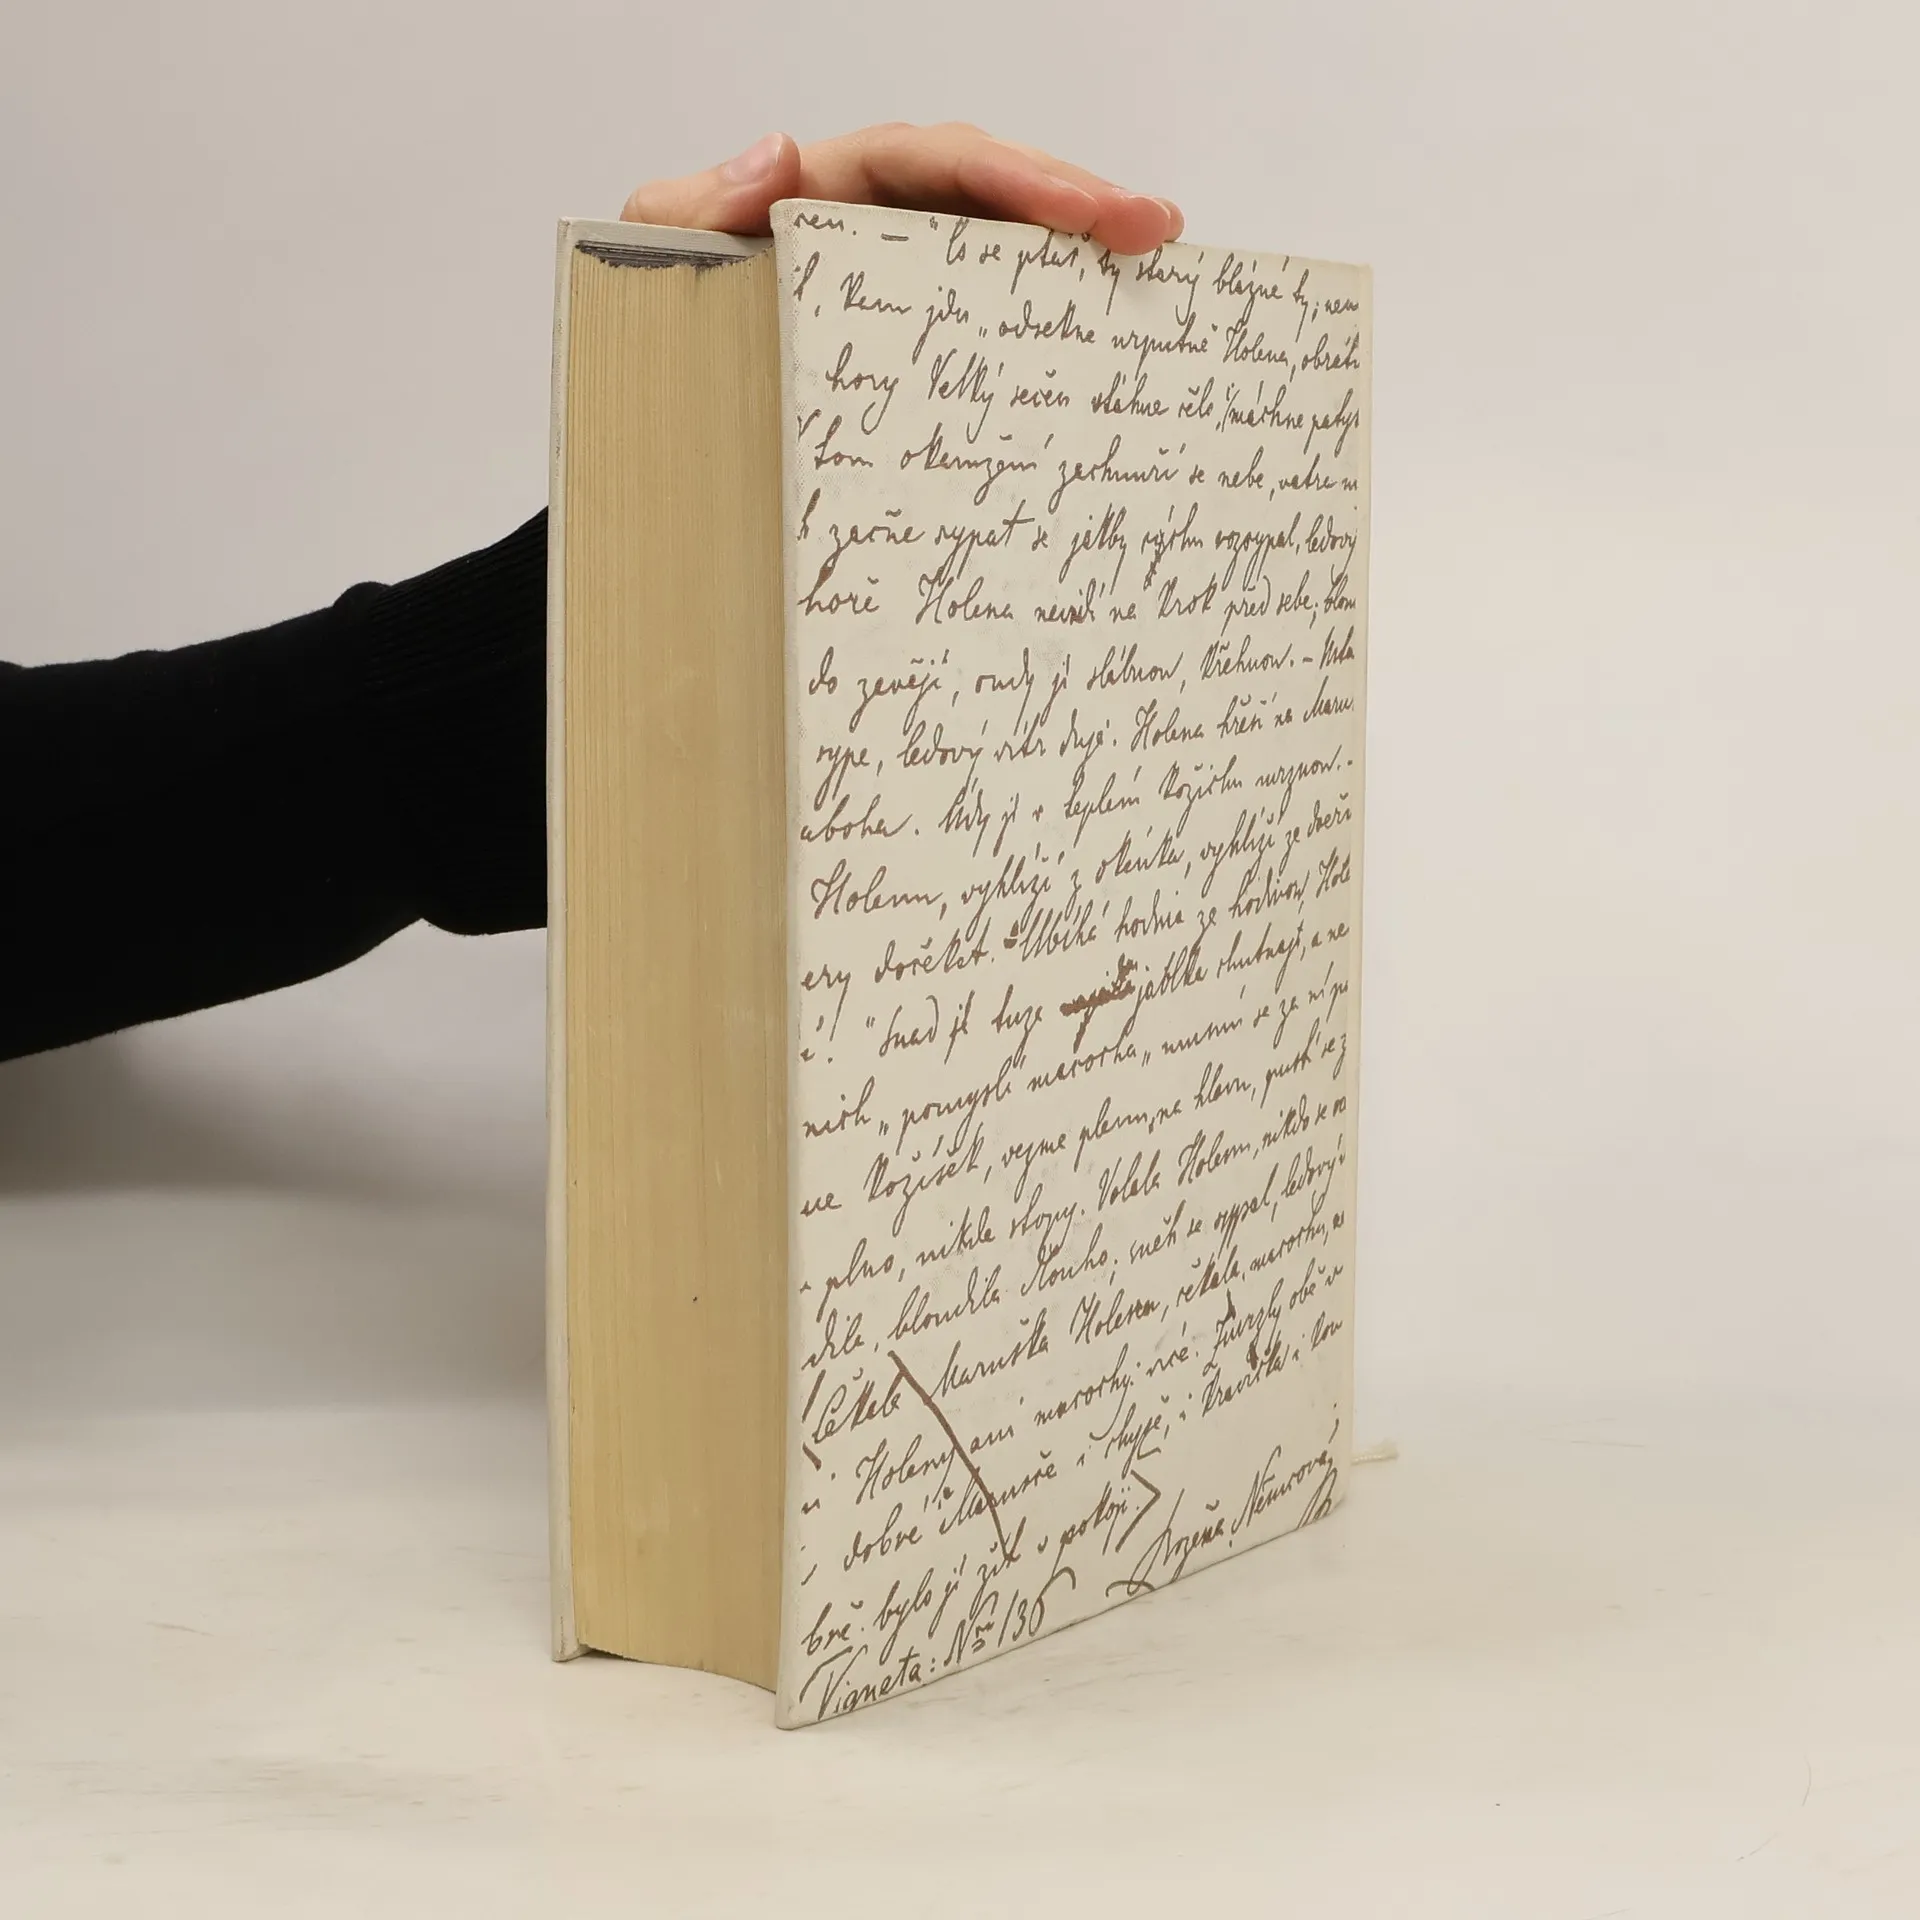 ren. — "Co se ptáš, ty starý blázne ty; nem
, kam jdu „odsekne urputně Holena, obrátí
hory Velký sečen stáhne čelo, máchne palys
tom okamžení zachmuří se nebe,
začne sypat se jakby rozsypal, ledový
hoře Holena nevidí na krok před sebe;
do závějí, oudy jí slábnou, křehnou. –
sype, ledový vítr duje. Holena hřeší na Maru
aboha. Oudy jí v teplém kožichu mrznou. -
Holenu, vyhlíží z okénka, vyhlíží ze dveří
ery dočekat. Ubíhá hodina ze hodinou, Hole
"Snad jí tuze jablka chutnají, a ne
nich „pomyslí macocha„ musím se za ní po
ne kožíšek, vezme plenu na hlavu, pustí se z
plno, nikde stopy. Volala Holenu, nikdo se
dila, bloudila dlouho; sněh se sypal, ledový v
Čekala Maruška Holenu, čekala, macochu,
Holeny ani macochy více. Zmrzly obě v
dobré Marušce i chyše, i kravička i kou
bře bylo jí žít v pokoji.
Božena Němcová
Vigneta: Nro 136